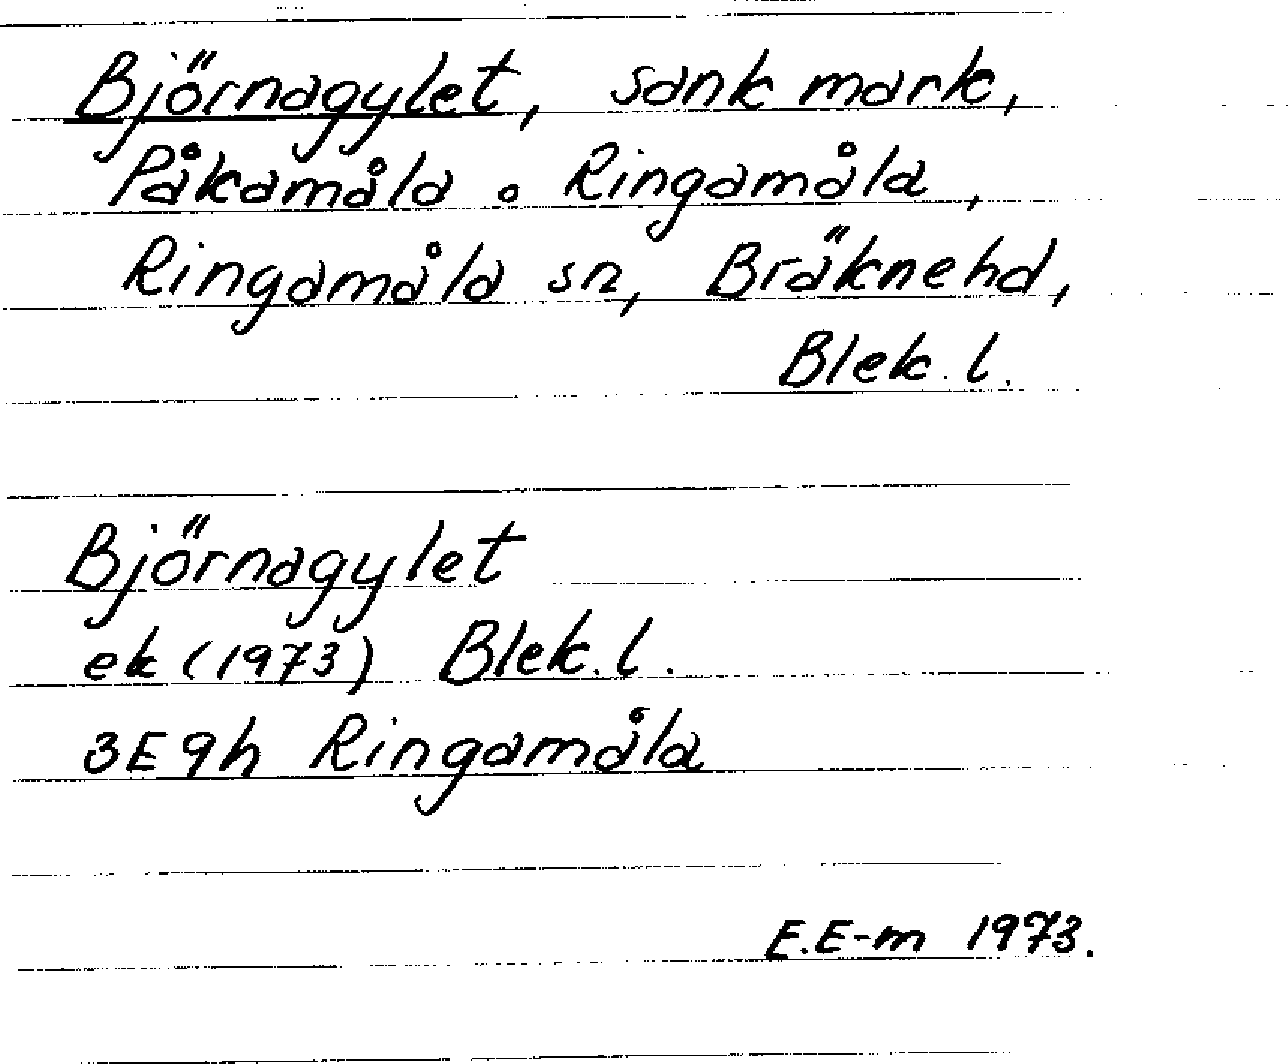 Björnagylet, sank mark,
Påkamåla o Ringamåla,
Ringamåla sn, Bräknehd,
Blek. l.
Björnagylet
ek (1973) Blek. l.
3E9h Ringamåla
E.E-m 1973.